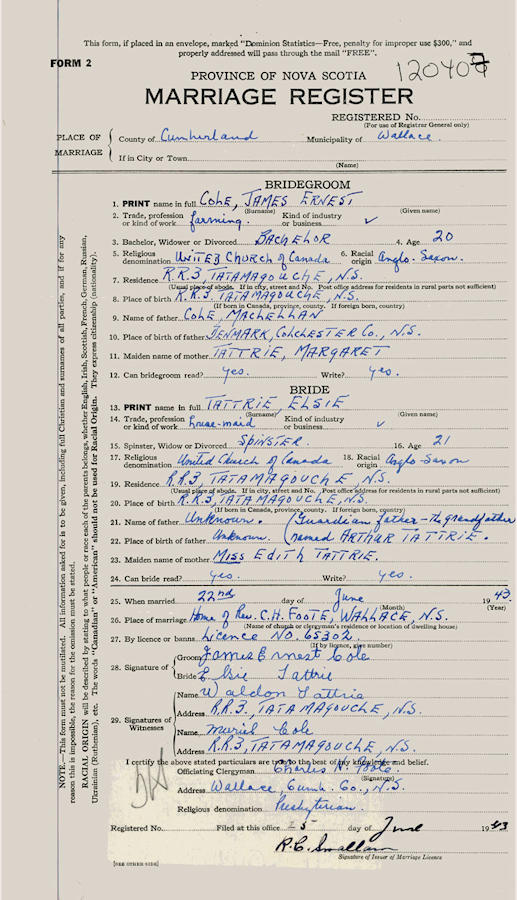 This form, if placed in an envelope, marked "Dominion Statistics—Free, penalty for improper use $300," and
properly addressed will pass through the mail "FREE".
FORM 2
PROVINCE OF NOVA SCOTIA
MARRIAGE REGISTER
REGISTERED No.
(For use of Registrar General only)
PLACE OF MARRIAGE
County of Cumberland Municipality of Wallace
If in City or Town
(Name)
BRIDEGROOM
1. PRINT name in full COLE, JAMES ERNEST
(Surname) (Given name)
2. Trade, profession or kind of work farming. Kind of industry or business
3. Bachelor, Widower or Divorced BACHELOR 4. Age 20
5. Religious denomination UNITED CHURCH of Canada 6. Racial origin Anglo-Saxon.
7. Residence R.R.3, TATAMAGOUCHE, N.S.
(Usual place of abode. If in city, street and No. Post office address for residents in rural parts not sufficient)
8. Place of birth R.R.3. TATAMAGOUCHE, N.S.
(If born in Canada, province, county. If foreign born, country)
9. Name of father COLE, MACLELLAN
10. Place of birth of father DENMARK, COLCHESTER Co., N.S.
11. Maiden name of mother TATTRIE, MARGARET
12. Can bridegroom read? yes. Write? yes.
BRIDE
13. PRINT name in full TATTRIE ELSIE
(Surname) (Given name)
14. Trade, profession or kind of work house-maid Kind of industry or business
15. Spinster, Widow or Divorced SPINSTER. 16. Age 21
17. Religious denomination United Church of Canada 18. Racial origin Anglo-Saxon
19. Residence R.R.3, TATAMAGOUCHE, N.S.
(Usual place of abode. If in city, street and No. Post office address for residents in rural parts not sufficient)
20. Place of birth R.R.3, TATAMAGOUCHE, N.S.
(If born in Canada, province, county. If foreign born, country)
21. Name of father Unknown. (Guardian father - the grandfather
22. Place of birth of father Unknown. (named ARTHUR TATTRIE.
23. Maiden name of mother MISS EDITH TATTRIE.
24. Can bride read? yes. Write? yes.
25. When married 22nd day of June 1943.
(Month) (Year)
26. Place of marriage Home of Rev. C.H. FOOTE, WALLACE, N.S.
(Name of church or clergyman's residence or location of dwelling house)
27. By licence or banns Licence No. 65302
(If by licence, give number)
28. Signature of
Groom James Ernest Cole
Bride Elsie Tattrie
29. Signatures of Witnesses
Name Waldon Tattrie
Address R.R.3, TATAMAGOUCHE, N.S.
Name Muriel Cole
Address R.R.3, TATAMAGOUCHE, N.S.
I certify the above stated particulars are true to the best of my knowledge and belief.
Officiating Clergyman Charles H. Foote.
(Signature)
Address Wallace, Cumb. Co., N.S.
Religious denomination Presbyterian.
Registered No. Filed at this office 25 day of June 1943
R.C. Smallman
Signature of Issuer of Marriage Licence
[SEE OTHER SIDE]
NOTE.—This form must not be mutilated. All information asked for is to be given, including full Christian and surnames of all parties, and if for any
reason this is impossible, the reason for the omission must be stated.
RACIAL ORIGIN will be described by stating to what people or race each of the parents belongs, whether English, Irish, Scottish, French, German, Russian,
Ukrainian (Ruthenian), etc. The words "Canadian" or "American" should not be used for Racial Origin. They express citizenship (nationality).